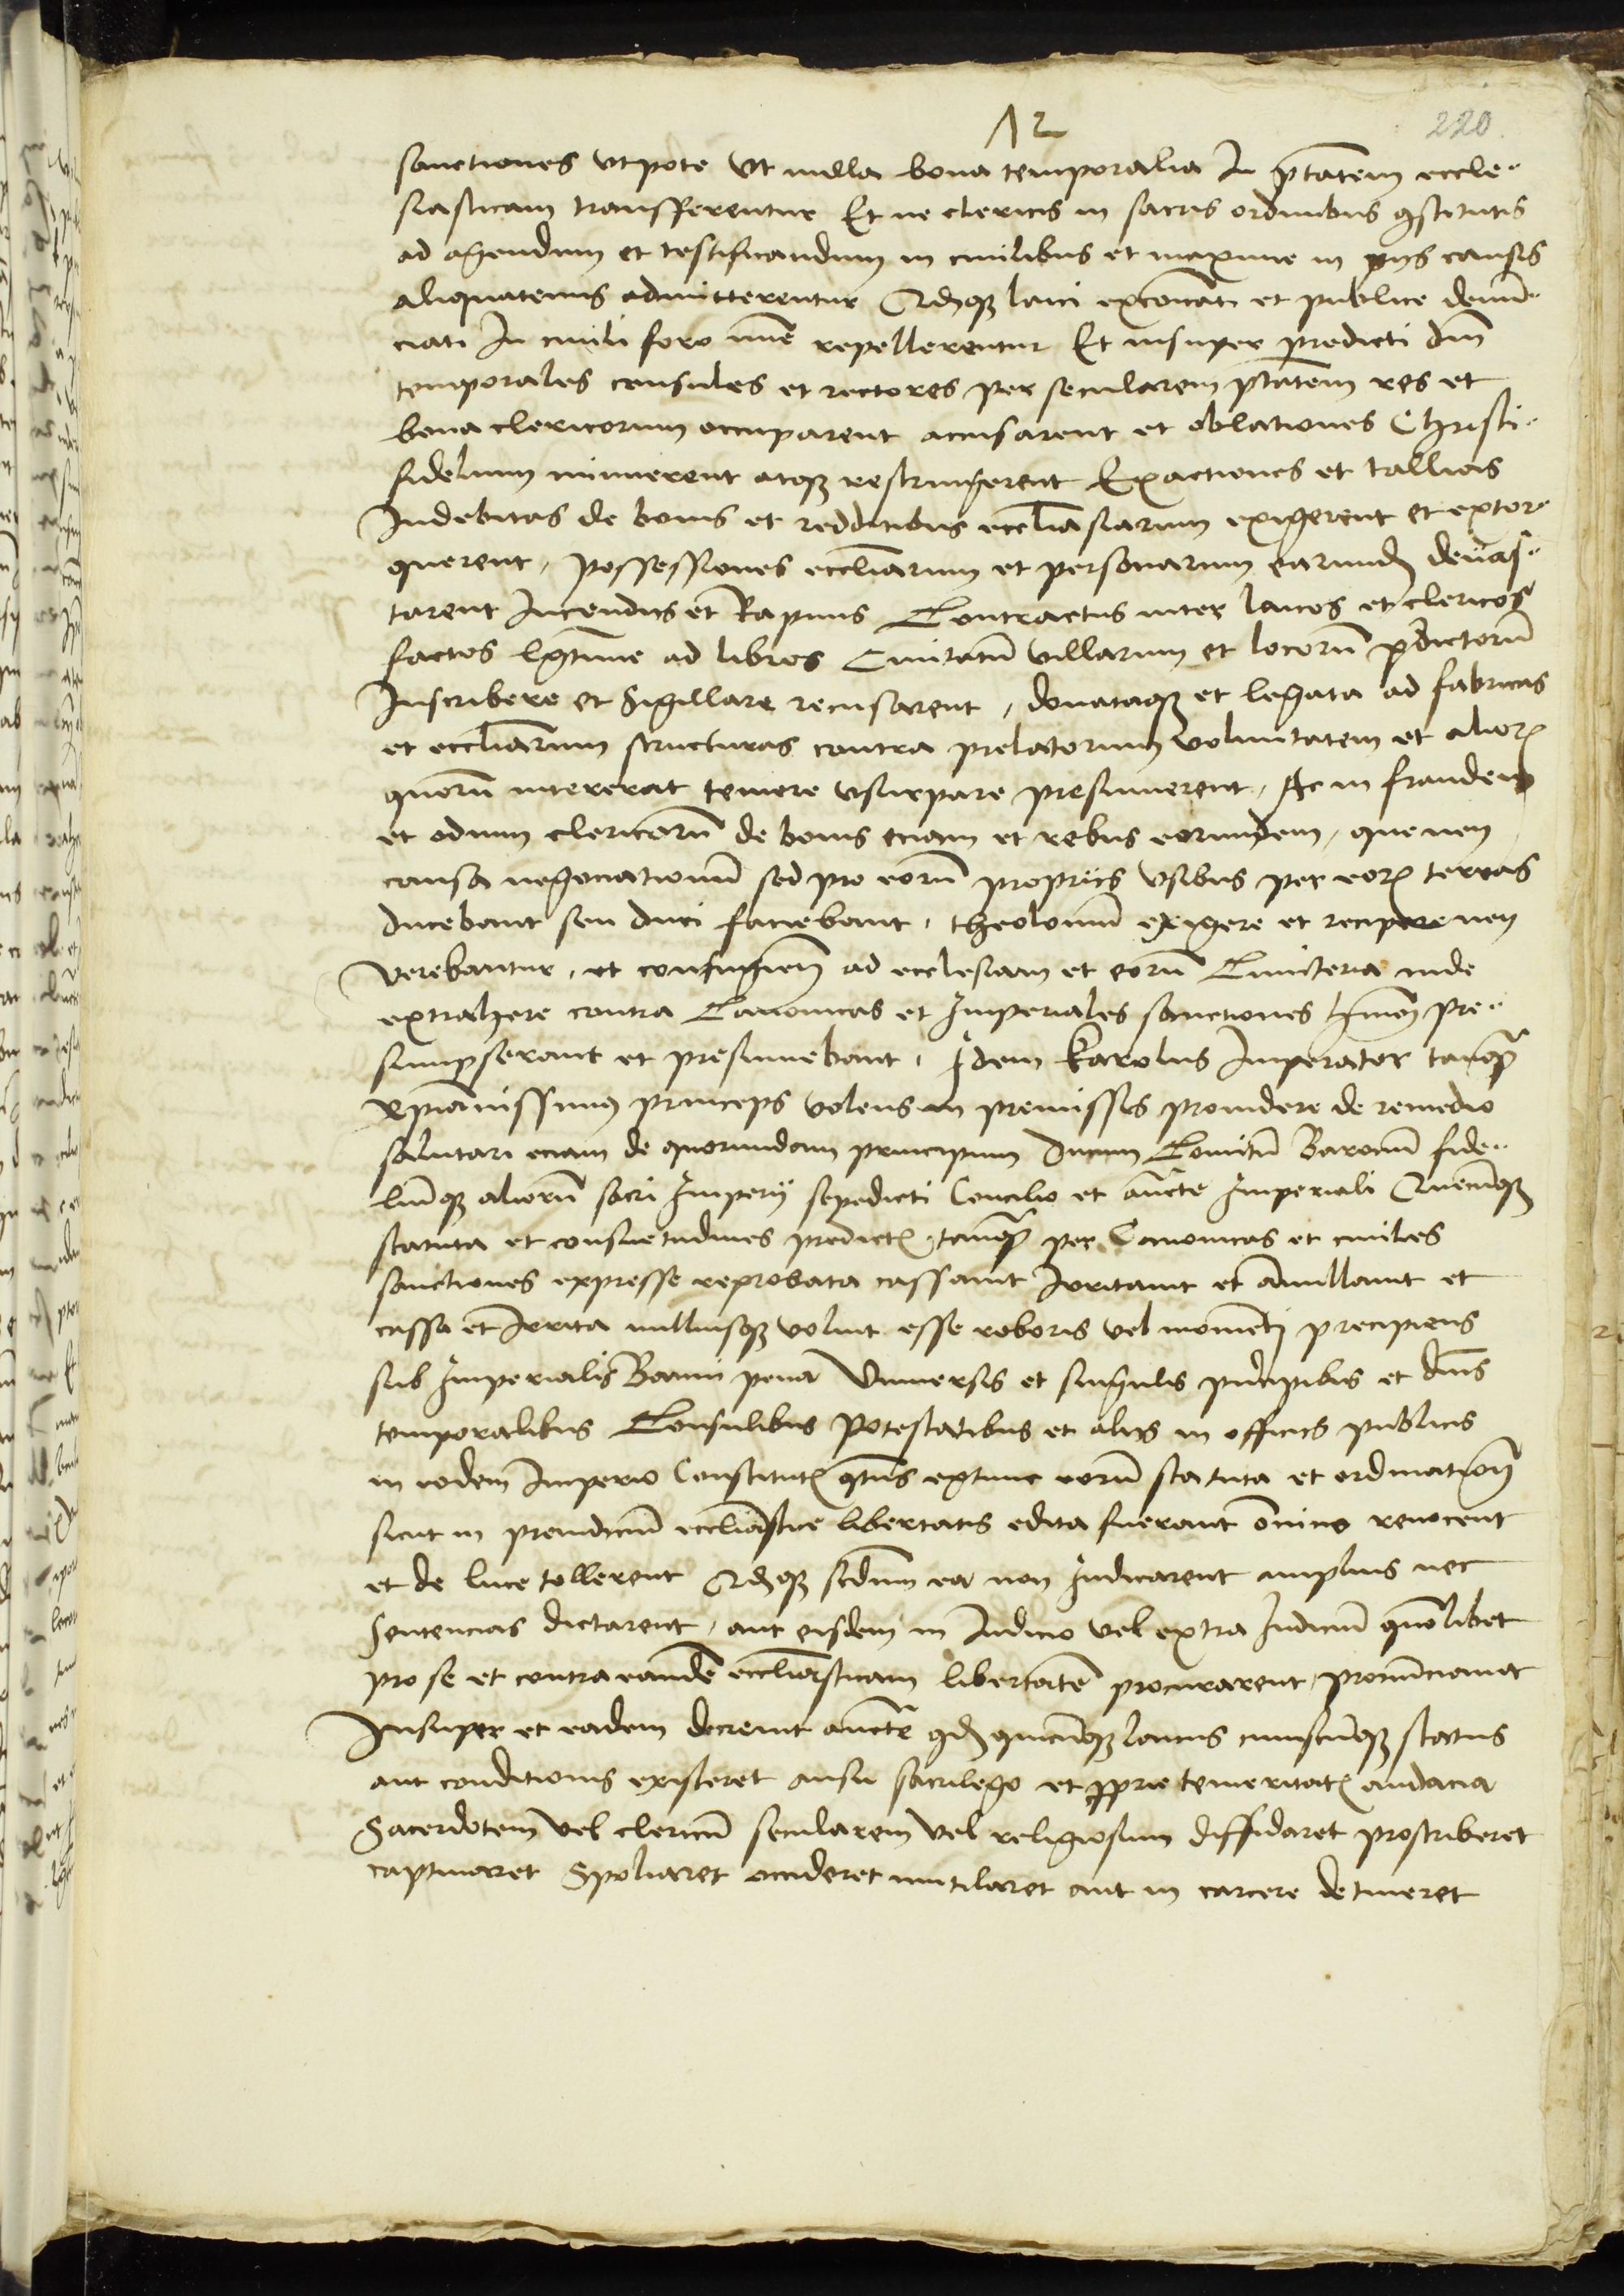 12
220.
sanctiones vtpote Vt nulla bona temporalia In ptatem eccle-
siasticam transfferentur Et ne clericis in sacris ordinibus 9stitutis
ad agendum et testificandum in ciuilibus et maxime in pijs causis
aliquatenus admitterentur Qdq3 laici excoicati et publice denũ-
ciati In ciuili foro mĩe repellerentur Et insuper predicti dñi
temporales consules et rectores per secularem ptãtem res et
bona clericorum occuparent accusarent et oblationes Christi-
fidelium minuerent atq3 restringerent Exactiones et tallias
Indebitas de bonis et redditibus eccliasiarum exigerent et extor-
querent, possessiones eccliarum et personarum earundẽ deuas-
tarent Incendijs et Rapinis Contractus inter laicos et clericos
factos lgtime ad libros Ciuitatũ villarum et locorũ p̃dictorũ
Inscribere et Sigillare recusarent, donataq3 et legata ad fabricas
et eccliarum structuras contra prelatorum voluntatem et alior
quorũ intererat temere vsurpare presumerent, Ac in fraudem
et odium clericorũ de bonis eciam et rebus eorundem, que non
causa negociationũ sed pro eorũ proprijs vsibus per eor terras
ducebant seu duci faciebant, theolonũ exigere et recipere non
verebantur, et confugieñ ad ecclesiam et eorũ Cimiteria inde
extrahere contra Canonicas et Imperiales sanctiones hmõi pre-
sumpserant et presumebant, Idem karolus Imperator tanq̃
xpianissimus princeps volens in premissis prouidere de remedio
salutari eciam de quorundam principum Ducum Comitũ Baronũ fide-
liũq3 aliorũ sacri Imperij sepedicti Concilio et aucte Imperiali Quecũq3
statuta et consuetudines predict tanq̃ per Canonicas et ciuiles
sanctiones expresse reprobata cassauit Irritauit et Annullauit et
cassa et Irrita nulliusq3 voluit esse roboris vel momẽti precipiens
sub Imperialis Banni pena Vniuersis et singulis principibus et dñis
temporalibus Consulibus Potestatibus et alijs in officijs publicis
in eodem Imperio Constitut q̃tus extunc eorũ statuta et ordinatioñ
sicut in preiudiciũ eccliastice libertatis edita fuerant õnino reuocent
et de luce tollerent Qdq3 scdum ea non Iudicarent amplius nec
Sentencias dictarent, aut eisdem in Iudicio vel extra Iudiciũ quõlibet
pro se et contra eandẽ eccliasticam libertatẽ procurarent, pronũciauit
Insuper et eadem decreuit aucte qd quicũq3 laicus cuiuscũq3 status
aut conditionis existeret ausu sacrilego et pprie temeritat audacia
Sacerdotem vel clericũ secularem vel religiosum diffidaret proscriberet
captiuaret Spoliaret occideret mutilaret aut in carcere detineret